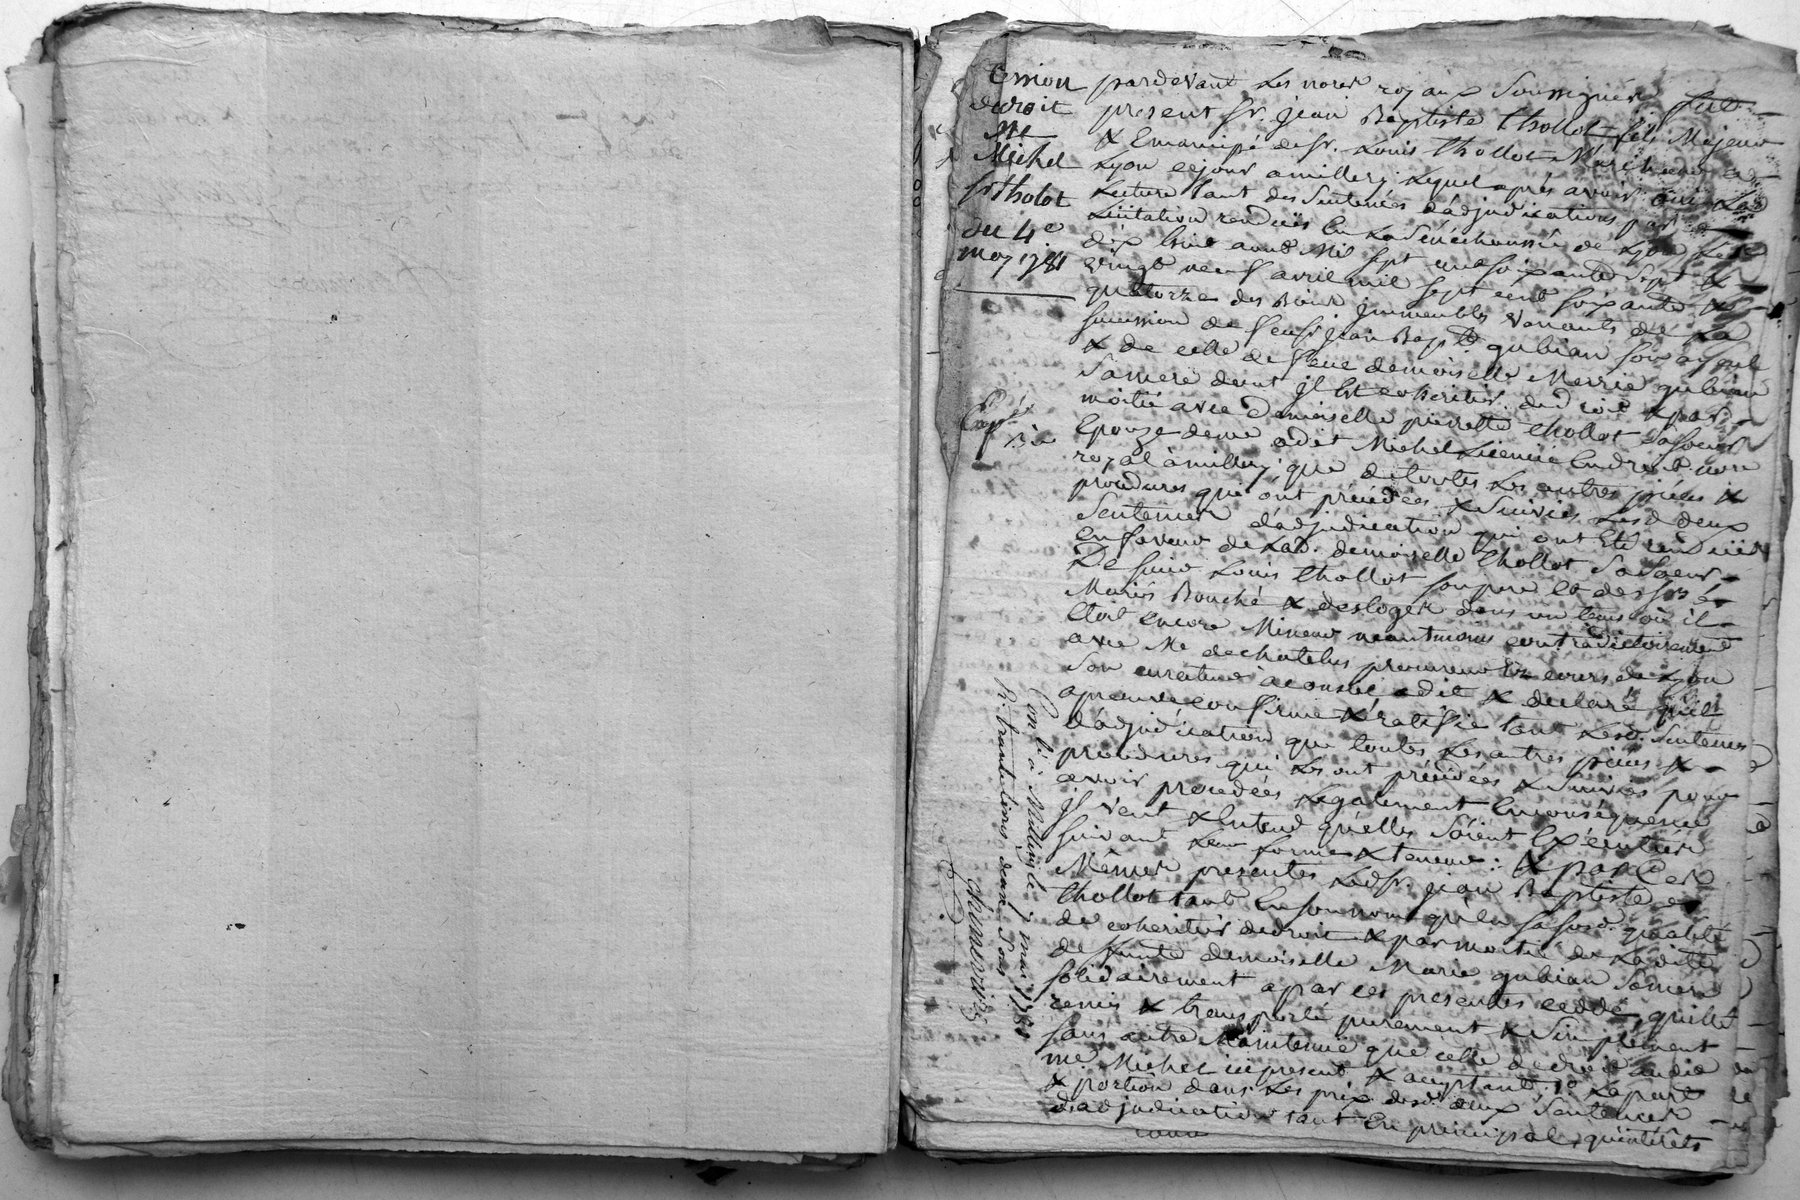 Cession
droit
Me
Michel
sr thollot
du 4e
may 1781
Expé
pardevant les nores royaux Soussignés fut
present Sr. jean Baptiste thollot fils Majeur
& Emancipé de sr. Louis thollot Marchand a
Lyon ce jour a millery, Lequel après avoir
Lecture tant des Sentences d'adjudications par
Licitation rendües En la Sénéchaussée de Lyon les
dix huit aout Mil sept cent soixante sept &
vingt neuf avril mil sept cent soixante &
quatorze des Biens jmmeubles venants de la
succession de feu sr. jean Bapte. gubian son ayeul
& de celle de feue demoiselle Marrie gubian
Sa mere dont jl Est coheritier de droit & par
moitié avec demoiselle pierrette thollot Sa soeur
Epouze de me odet Michel Licencié En droit nore
royal à millery; que de toutes les autres pieces &
procedures qui ont précédées & Suivies lesd. deux
Sentences d'adjudication qui ont Eté rendües
En faveur de lad. demoiselle thollot Sa Soeur
De sieur Louis thollot son pere Et des srs
Mariés Bouché & desloges dans un tems où il
Etoit Encore Mineur neantmoins contradictoirement
avec Me dechatelus procureur Ez cours de Lyon
Son curateur a dit & declaré qu'il
aprouve confirme & ratifie tant lesd. Sentences
d'adjudication que toutes les autres pieces &
procedures qui les ont précédées & Suivies pour
avoir procedées Légalement En conséquence
jl veut & Entend qu'elles Soïent Exécutées
suivant leur forme & teneur: & par Ces
Mêmes presentes Ledsr. jean Baptiste
thollot tant En son nom qu'En sa susd. qualité
de coheritier de droit & par moitié de La ditte
defunte demoiselle Marie gubian Sa mere
solidairement a par ces presentes ceddé, quitté
remis & transporté purement & Simplement
sans autre Maintenüe que celle de droit audit
me. Michel ici present & acceptant, 1° La part
& portion dans les prix desd. deux Sentences
d'adjudication tant En principal, qu'intérêts
Conlé à Millery le mai 1781
R: trente livres deux Sous